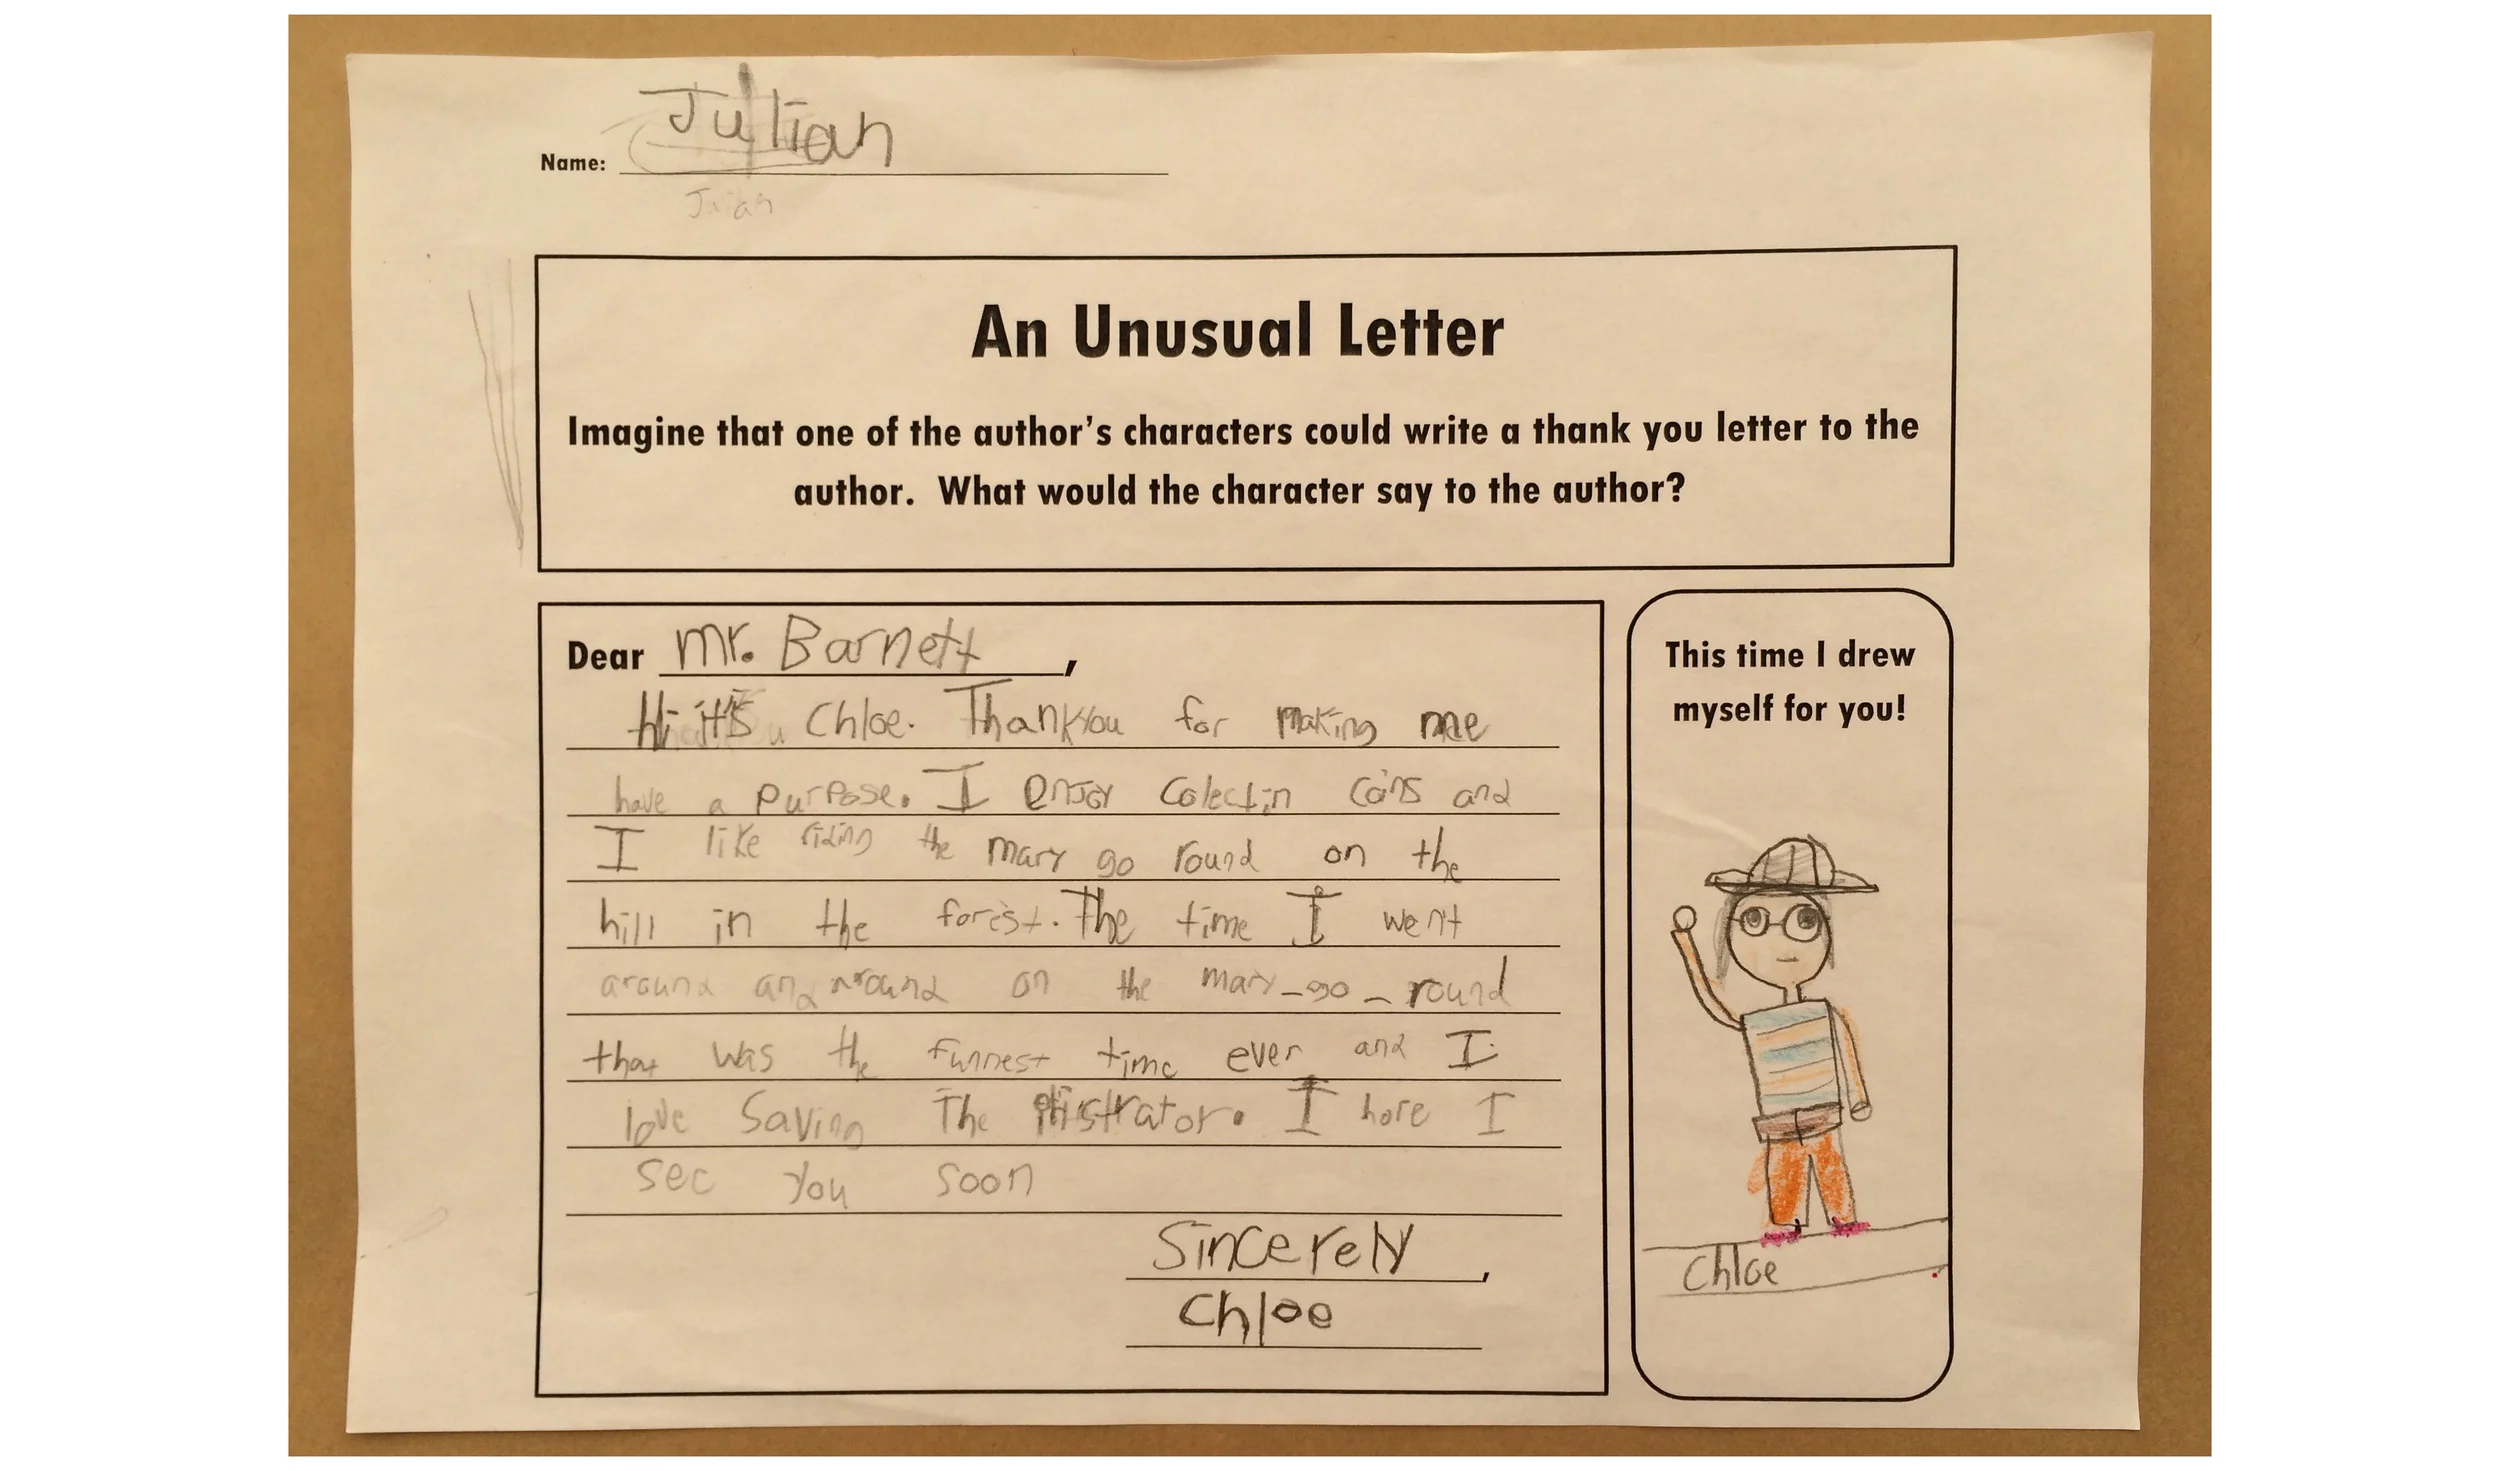 Julian
Name:
An Unusual Letter
Imagine that one of the author's characters could write a thank you letter to the
author. What would the character say to the author?
Dear Mr. Barnett,
Hi it's Chloe. Thankyou for making me
have a purpose. I enjoy Colectin Coins and
I like riding the mary go round on the
hill in the forest. The time I went
around and around on the mary-go-round
that was the funnest time ever and I
love Saving The illistrator. I hope I
see you soon
Sincerely,
Chloe
This time I drew
myself for you!
Chloe